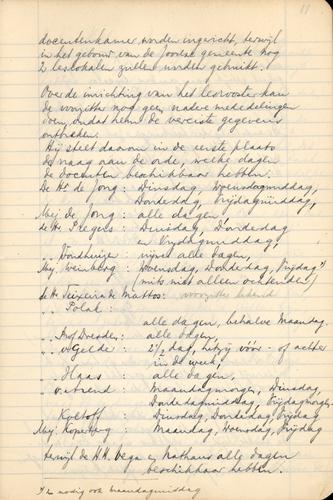 11
docentenkamer worden ingericht, terwijl
in het gebouw van de Joodse gemeente nog
2 leslokalen zullen worden gebruikt.
Over de inrichting van het lesrooster kan
de voorzitter nog geen nadere mededelingen
doen, omdat hem de vereiste gegevens
ontbreken.
Hij stelt daarom in de eerste plaats
de vraag aan de orde, welke dagen
de docenten beschikbaar hebben.
De Hr. de Jong: Dinsdag, Woensdagmiddag,
Donderdag, Vrijdagmiddag,
Mej. de Jong: alle dagen,
de Hr. Pregers: Dinsdag, Donderdag
en Vrijdagmiddag,
" " Nordheimer: vrijwel alle dagen,
Mej. Weinberg: Woensdag, Donderdag, Vrijdag *)
(mits niet alleen ochtenden)
de Hr. Teixeira de Mattos:
" " Polak:
alle dagen, behalve Maandag
" " Prof Dresden: alle dagen,
" " v. Gelde: 2 1/2 dag, hetzij vóór- of achter
in de week,
" " Haas: alle dagen,
" " v. d. Arend: Maandagmorgen, Dinsdag,
Donderdagmiddag, Vrijdagmorgen,
" " Koltoff: Dinsdag, Donderdag, Vrijdag
Mej. Koperberg: Maandag, Woensdag, Vrijdag
terwijl de H.H. Vega en Nathans alle dagen
beschikbaar hebben.
*) Zo nodig ook maandagmiddag